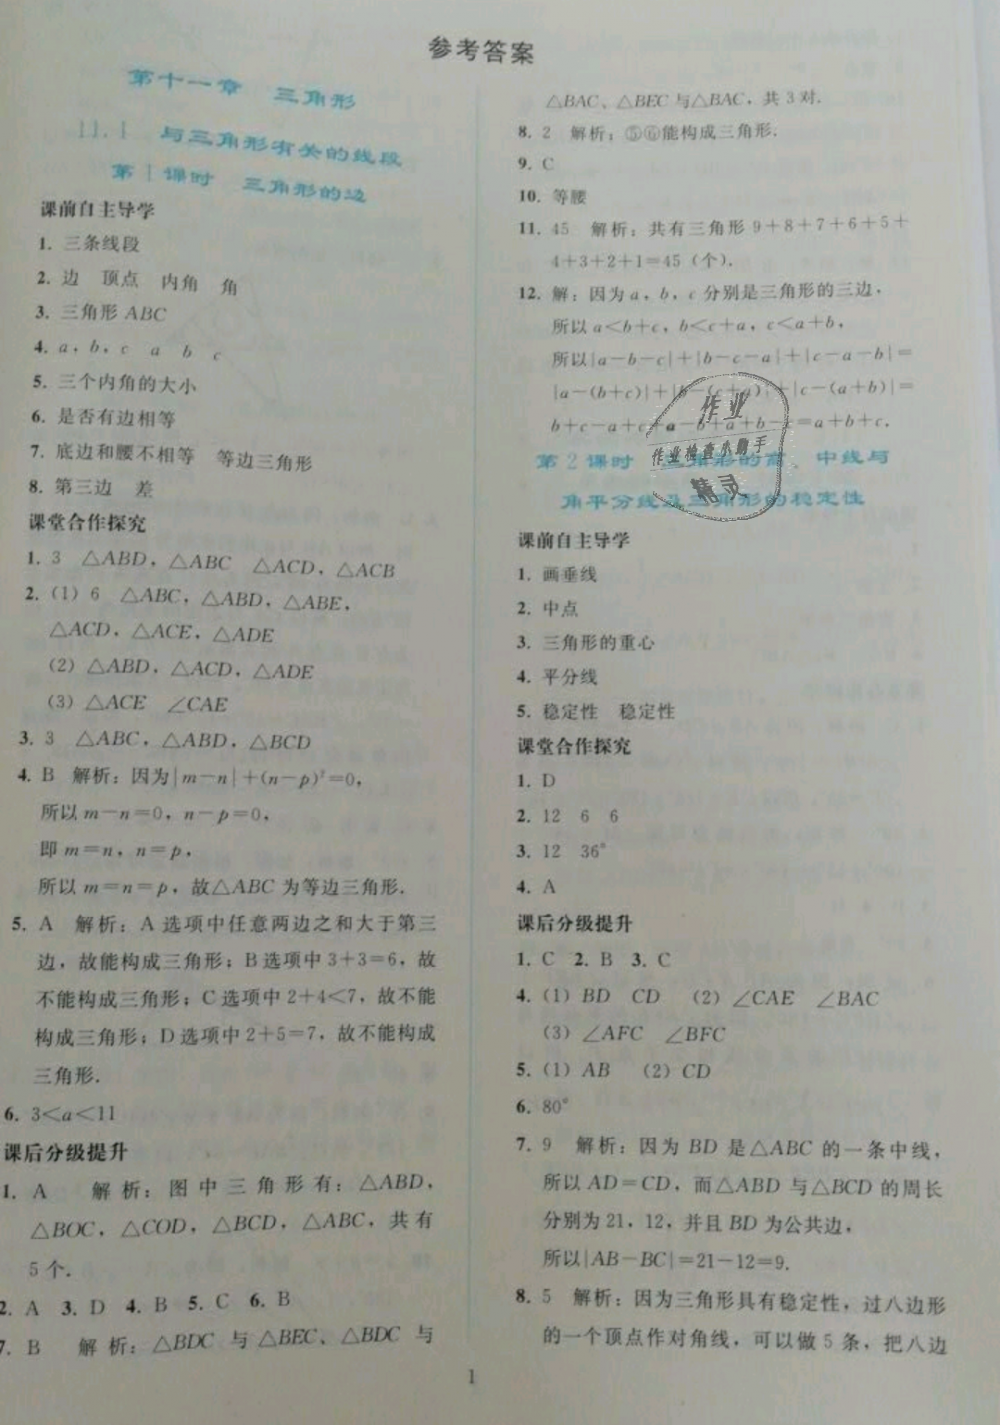 参考答案
第十一章 三角形
11.1 与三角形有关的线段
第1课时 三角形的边
课前自主导学
1. 三条线段
2. 边 顶点 内角 角
3. 三角形 ABC
4. a,b,c a b c
5. 三个内角的大小
6. 是否有边相等
7. 底边和腰不相等 等边三角形
8. 第三边 差
课堂合作探究
1. 3 △ABD,△ABC △ACD,△ACB
2. (1) 6 △ABC,△ABD,△ABE,
△ACD,△ACE,△ADE
(2) △ABD,△ACD,△ADE
(3) △ACE ∠CAE
3. 3 △ABC,△ABD,△BCD
4. B 解析:因为|m-n|+(n-p)²=0,
所以 m-n=0,n-p=0,
即 m=n,n=p,
所以 m=n=p,故△ABC 为等边三角形.
5. A 解析:A 选项中任意两边之和大于第三
边,故能构成三角形;B选项中 3+3=6,故
不能构成三角形;C 选项中 2+4<7,故不能
构成三角形;D 选项中 2+5=7,故不能构成
三角形.
6. 3<a<11
课后分级提升
1. A 解析:图中三角形有:△ABD,
△BOC,△COD,△BCD,△ABC,共有
5 个.
2. A 3. D 4. B 5. C 6. B
7. B 解析:△BDC 与△BEC、△BDC 与
△BAC、△BEC 与△BAC,共 3 对.
8. 2 解析:⑤⑥能构成三角形.
9. C
10. 等腰
11. 45 解析:共有三角形 9+8+7+6+5+
4+3+2+1=45(个).
12. 解:因为 a,b,c 分别是三角形的三边,
所以 a<b+c,b<c+a,c<a+b,
所以|a-b-c|+|b-c-a|+|c-a-b|=
|a-(b+c)|+|b-(c+a)|+|c-(a+b)|=
b+c-a+c+a-b+a+b-c=a+b+c.
作业
作业检查小助手
精灵
第2课时 三角形的高、中线与
角平分线及三角形的稳定性
课前自主导学
1. 画垂线
2. 中点
3. 三角形的重心
4. 平分线
5. 稳定性 稳定性
课堂合作探究
1. D
2. 12 6 6
3. 12 36°
4. A
课后分级提升
1. C 2. B 3. C
4. (1) BD CD (2) ∠CAE ∠BAC
(3) ∠AFC ∠BFC
5. (1) AB (2) CD
6. 80°
7. 9 解析:因为 BD 是△ABC 的一条中线,
所以 AD=CD,而△ABD 与△BCD 的周长
分别为 21,12,并且 BD 为公共边,
所以|AB-BC|=21-12=9.
8. 5 解析:因为三角形具有稳定性,过八边形
的一个顶点作对角线,可以做 5 条,把八边
1